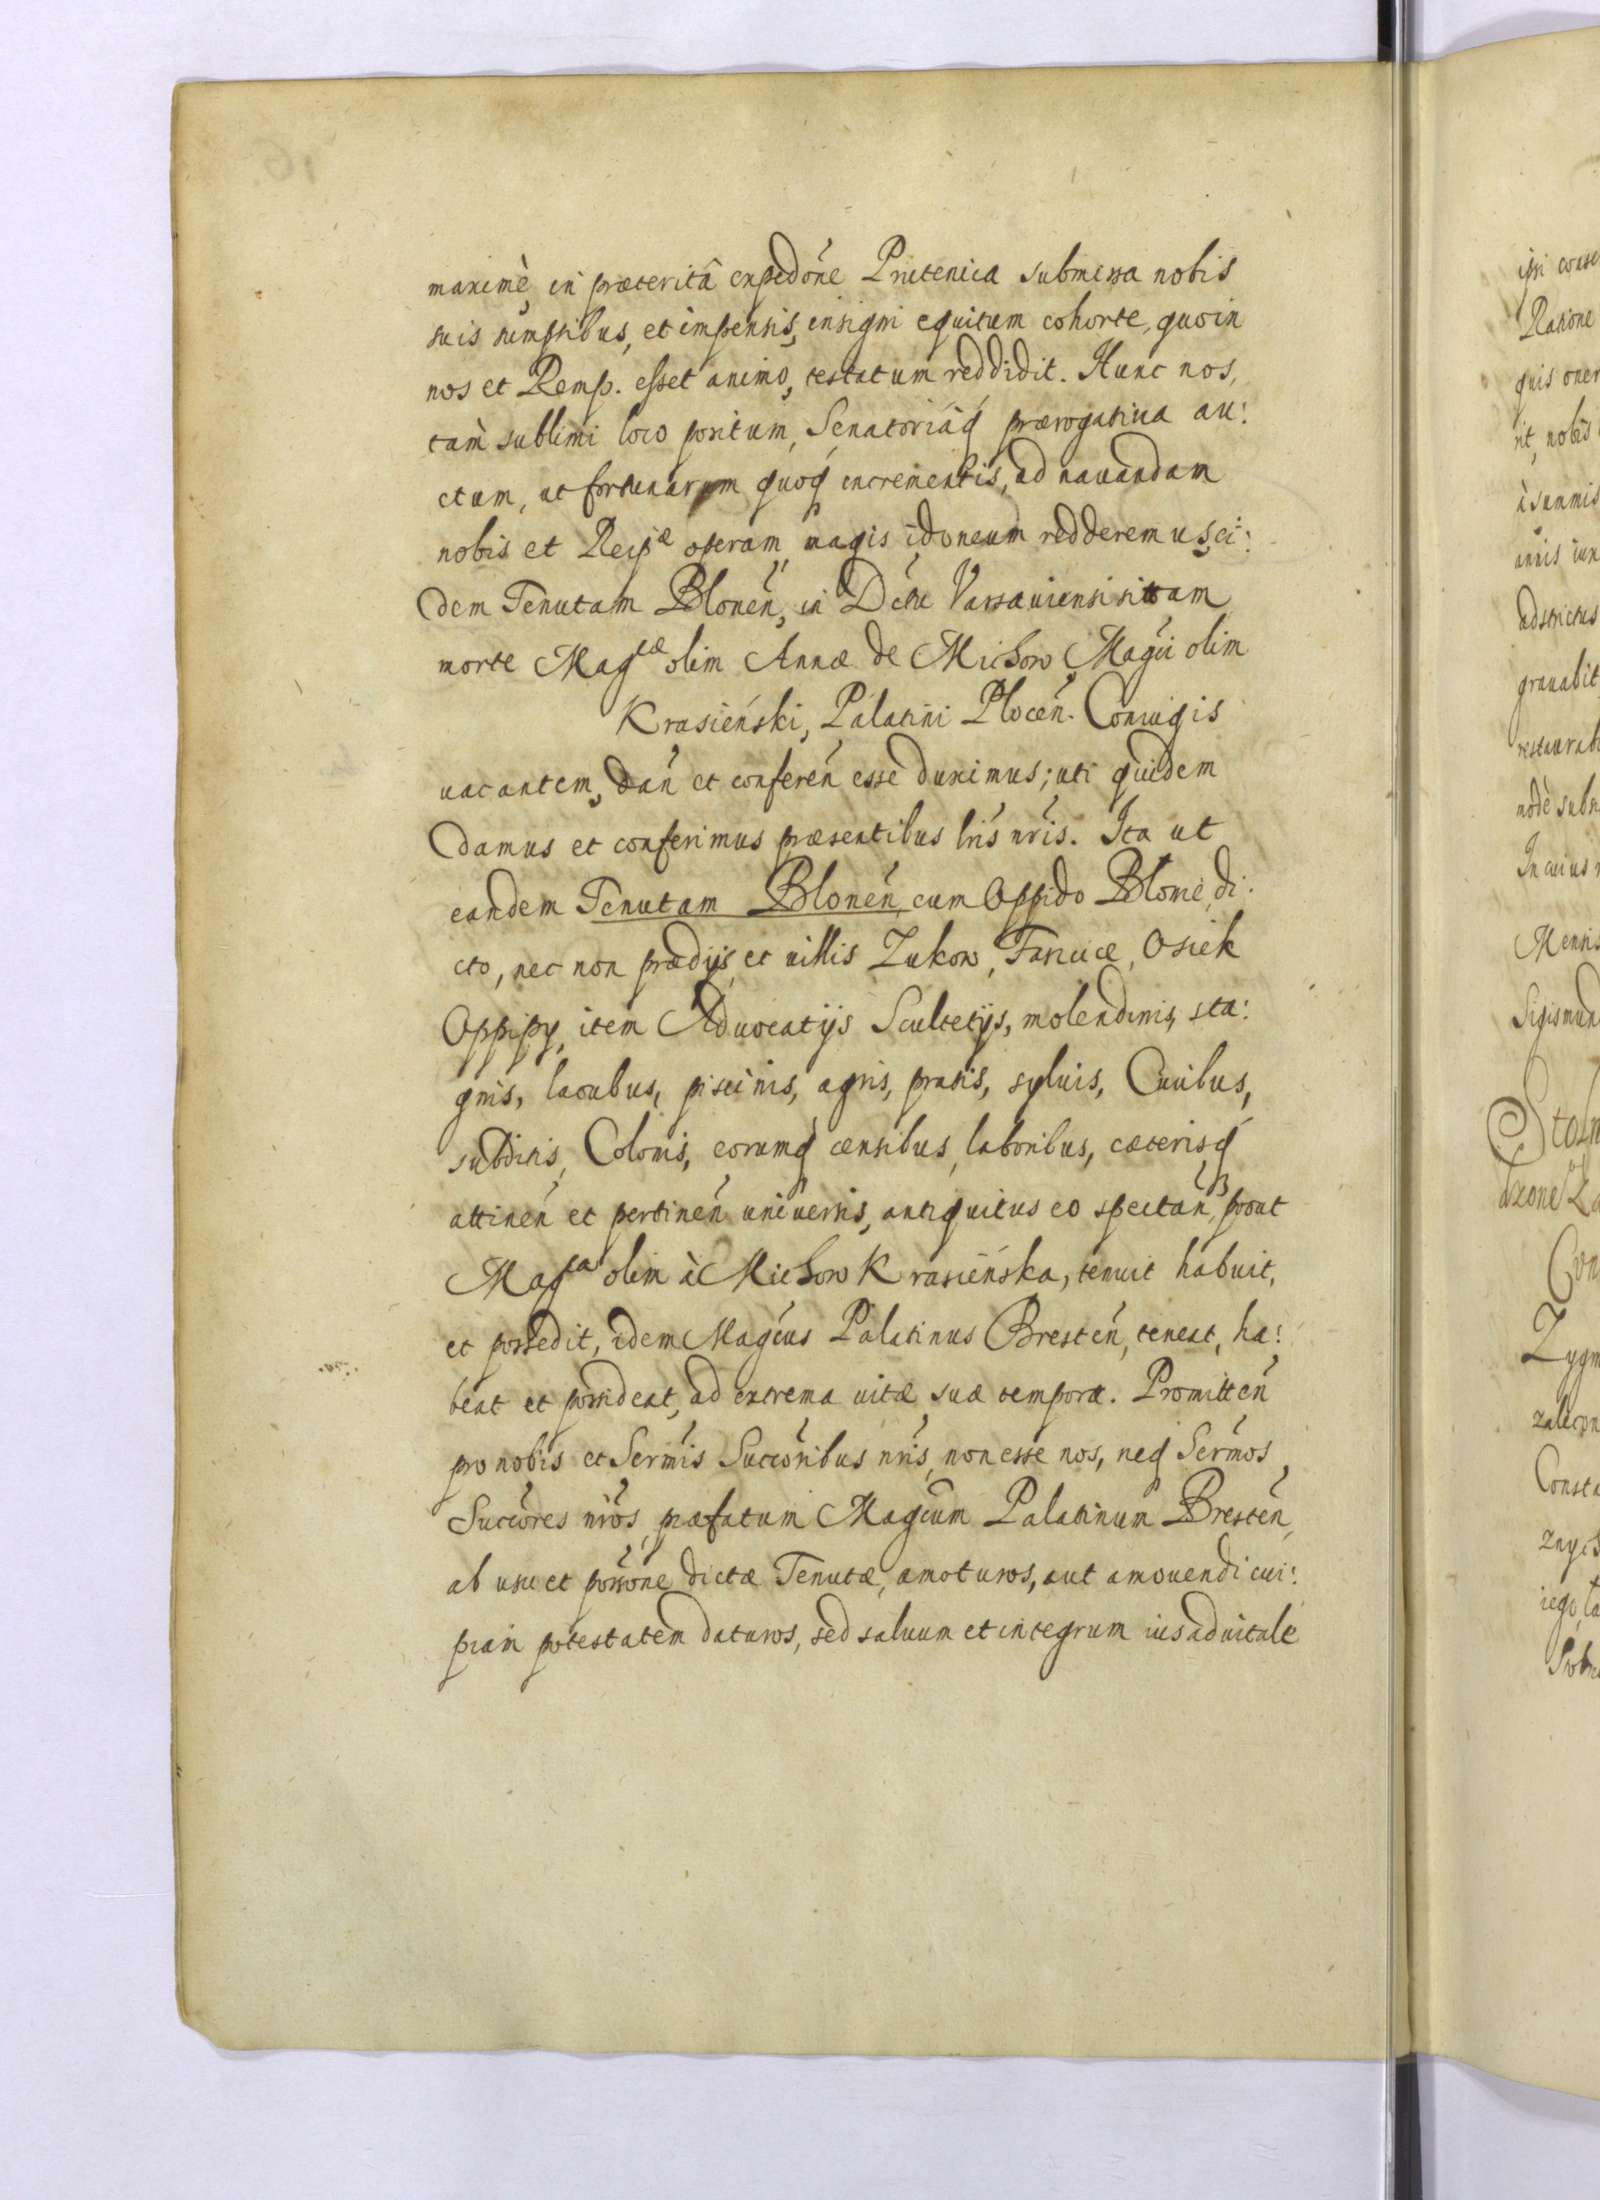 maximè, in præteritâ expedōne Prutenica submissa nobis
suis sumptibus, et impensis, insigni equitum cohorte, quo in
nos et Remp. esset animo, testatum reddidit. Hunc nos,
tam sublimi loco positum, Senatoriáq́ prærogatiua au:
ctum, ut fortunarum quoq́ incrementis, ad nauandam
nobis et Reipæ operam, magis idoneum redderemus, ei:
dem Tenutam Blonen̄, in Dctu Varsauiensi sitam
morte Magcæ olim Annæ de Michow, Magci olim
Krasieński, Palatini Plocen̄. Coniugis
uacantem, dan̄ et conferen̄ esse duximus; uti quidem
damus et conferimus præsentibus lris nris. Ita ut
eandem Tenutam Blonen̄, cum Oppido Blonie, di:
cto, nec non prædijs et uillis Zukow, Fasicæ, Osiek
Oppipy, item Aduocatijs Scultetijs, molendinis, sta:
gnis, lacubus, piscinis, agris, pratis, syluis, Ciuibus,
subditis, Colonis, eorumq́ censibus, laboribus, cæterisq́
attinen̄ et pertinen̄ uniuersis, antiquitus eo spectan̄, prout
Magca olim à Michow Krasieńska, tenuit habuit,
et possedit, idem Magcus Palatinus Bresten̄, teneat, ha:
beat et possideat, ad extrema uitæ suæ tempora. Promitten̄
pro nobis et Sermis Succoribus nris, non esse nos, neq́ Sermos
Succores nros, præfatum Magcum Palatinum Bresten̄,
ab usu et possōne dictæ Tenutæ, amoturos, aut amouendi cui:
piam potestatem daturos, sed saluum et integrum ius aduitale